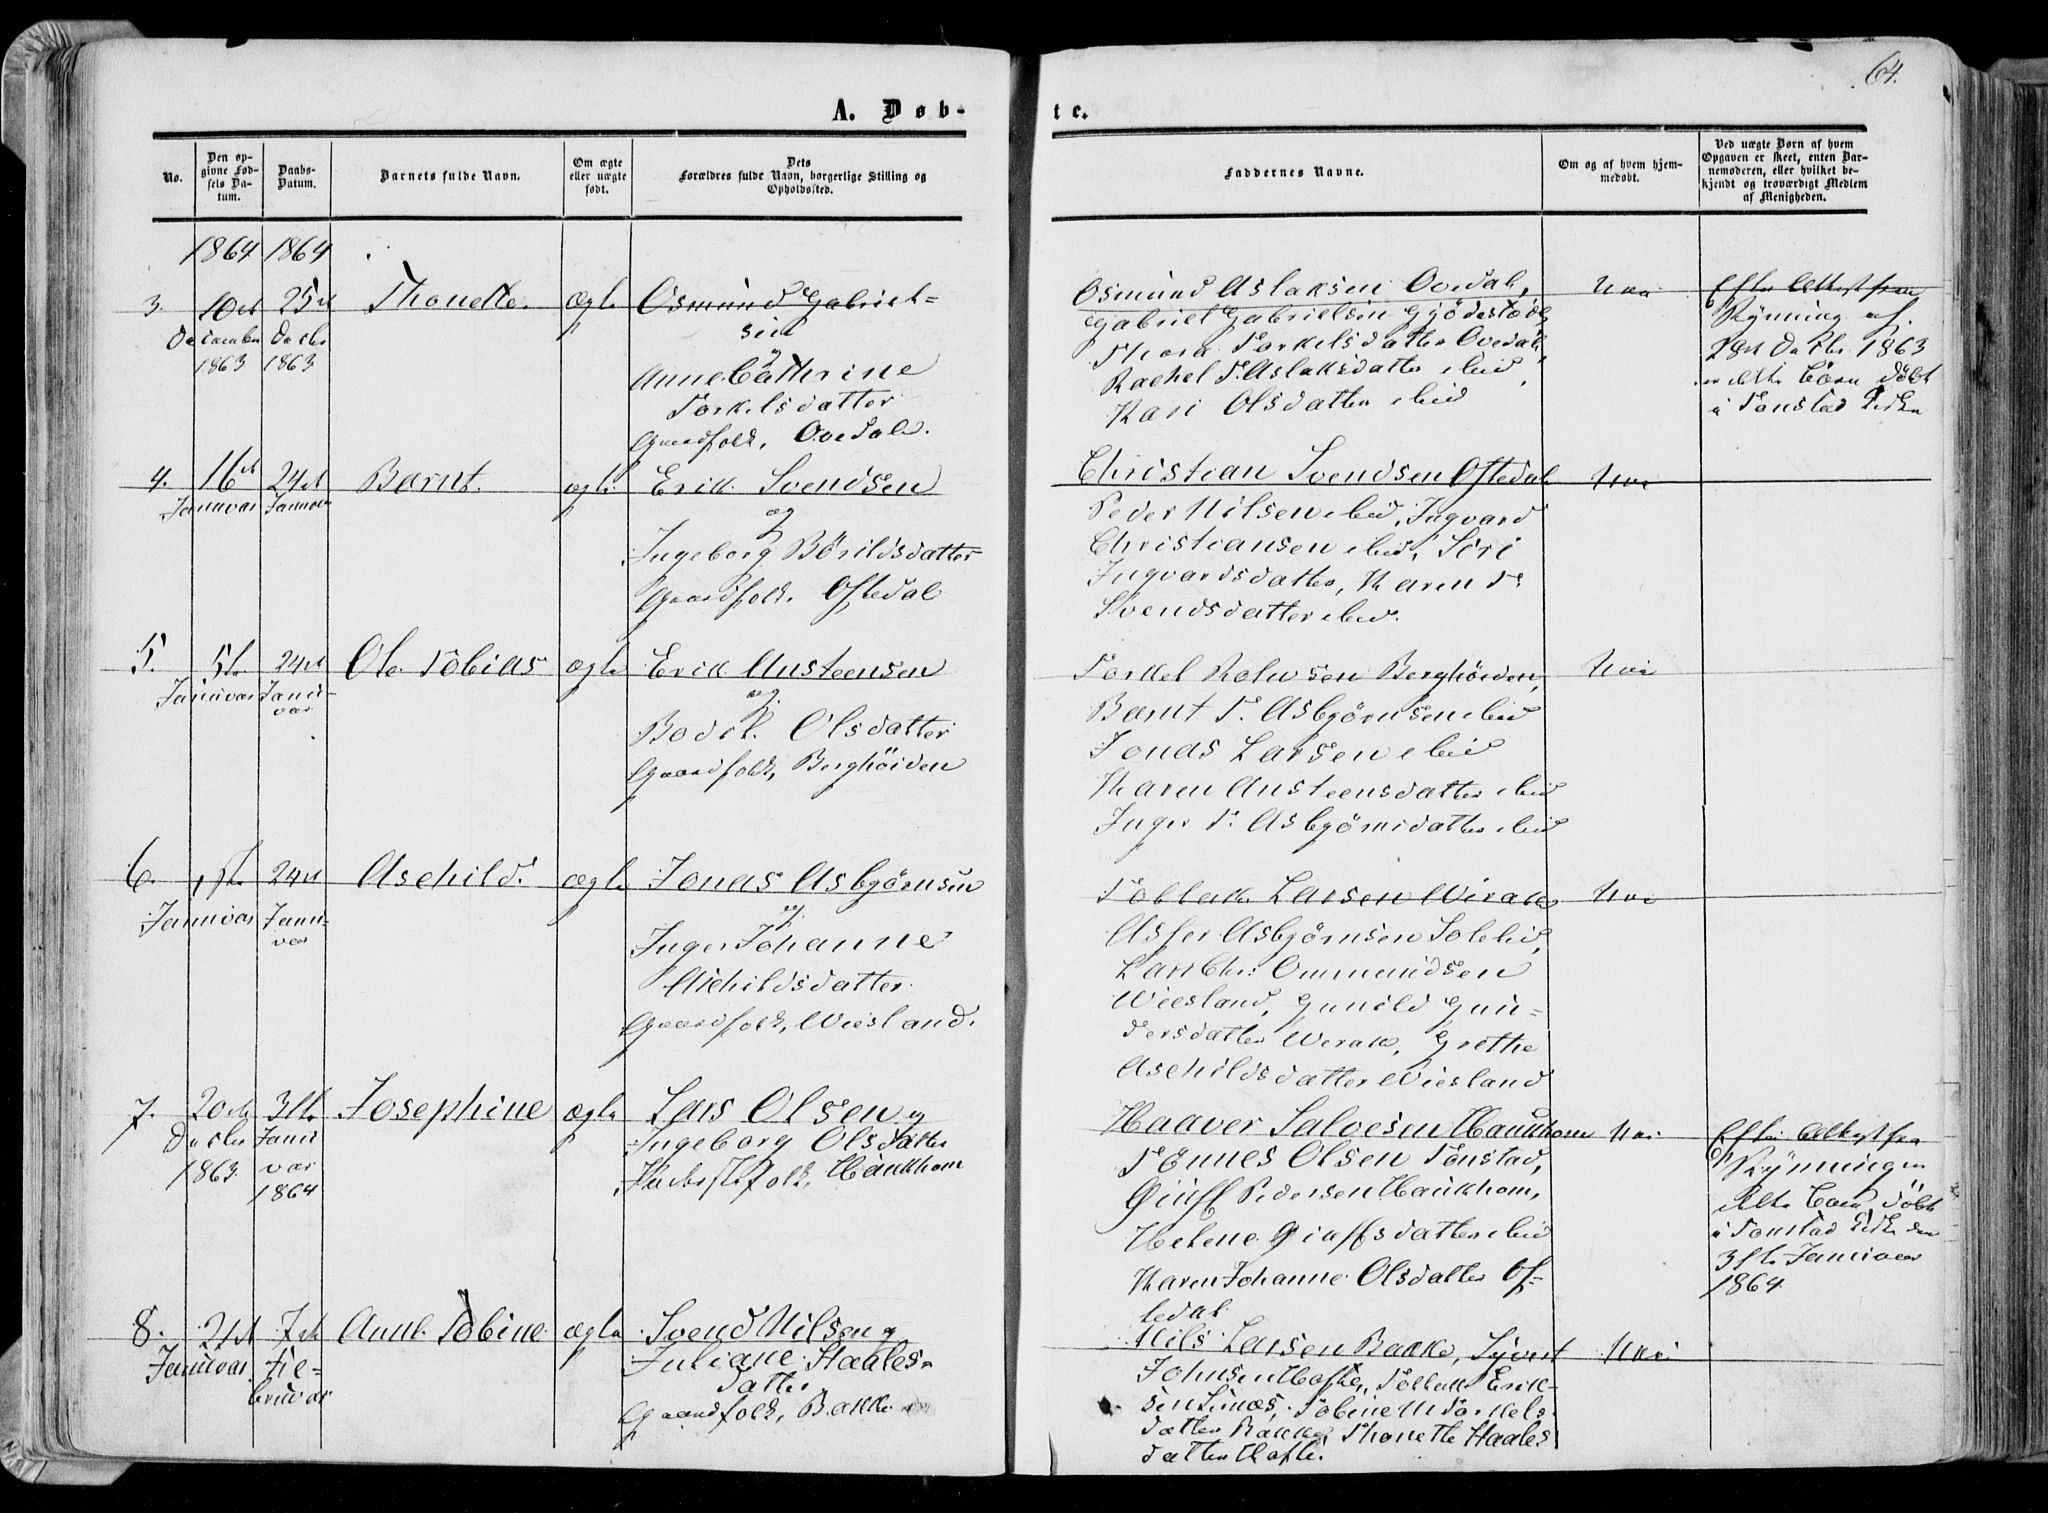 64.
A. Døb-
te.
No.
Den op-
givne Fød-
sels Da-
tum.
Daabs-
Datum.
Barnets fulde Navn.
Om ægte
eller uægte
født.
Dets
Forældres fulde Navn, borgerlige Stilling og
Opholdssted.
Faddernes Navne.
Om og af hvem hjem-
medøbt.
Ved uægte Børn af hvem
Opgaven er skeet, enten Bar-
nemoderen, eller hvilket be-
kjendt og troværdigt Medlem
af Menigheden.
1864 1864
3. 10de 25de Thonette ægte Osmund Gabriel-
December Decbr sen
1863 1863 og
Anne Cathrine
Torkelsdatter
Gaardfolk, Ovedal.
Osmund Aslaksen Ovedal,
Gabriel Gabrielsen
Thora Torkelsdatter Ovedal,
Rachel T. Aslaksdatter ibid,
Kari Olsdatter ibid
Nei
Efter Attest fra
Rynning af
28de Decbr. 1863
er dette Barn døbt
i Tonstad Kirke
4. 16de 24de Barnt. ægte Erik Svendsen
Januar Januar og
Ingeborg Börildsdatter
Gaardfolk. Oftedal
Christian Svendsen Oftedal
Peder Nilsen ibid, Ingvard
Christiansen ibid, Siri
Ingvardsdatter, Karen T.
Svendsdatter ibid.
Nei
5. 5te 24de Ole Tobias ægte Erik Austeensen
Januar Janu- og
ar
Bodil Olsdatter
Gaardfolk, Berghöiden
Torkel Rolvsen Berghöiden,
Barnt T. Asbjørnsen ibid
Jonas Larsen ibid
Karen Austeensdatter ibid
Inger T. Asbjørnsdatter ibid
Nei
6. 1ste 24de Aschild ægte Jonas Asbjørnsen
Januar Janu- og
ar
Inger Johanne
Aschildsdatter
Gaardfolk, Wiesland.
Tollak Larsen Wirak
Asser Asbjørnsen Solelid,
Lars Chr. Ommundsen
Wiesland, Gunild Gun-
dersdatter Wirak, Grethe
Aschildsdatter Wiesland
Nei
7. 20de 31te Josephine ægte Lars Olsen og
Decbr Janu Ingeborg Olsdatter
1863 ar Haukhom
1864
Haaver Salvesen Haukhom
Tönnes Olsen Tonstad,
Giuff Pedersen Haukhom,
Helene Giuffsdatter ibid
Karen Johanne Olsdatter Of-
tedal
Nei
Efter Attest fra
Rynning er
dette Barn døbt
i Tonstad Kirke den
31te Januar
1864
8. 2de 7de Anne Tobine ægte Svend Nilsen og
Januar Fe- Juliane Haales-
bruar datter
Gaardfolk, Bakke
Nils Larsen Bakke, Syvert
Johnsen Hafte, Tollak Erik-
sen Sinnes, Tobine M Torkels-
datter Bakke, Thonette Haales
datter Hafte.
Nei